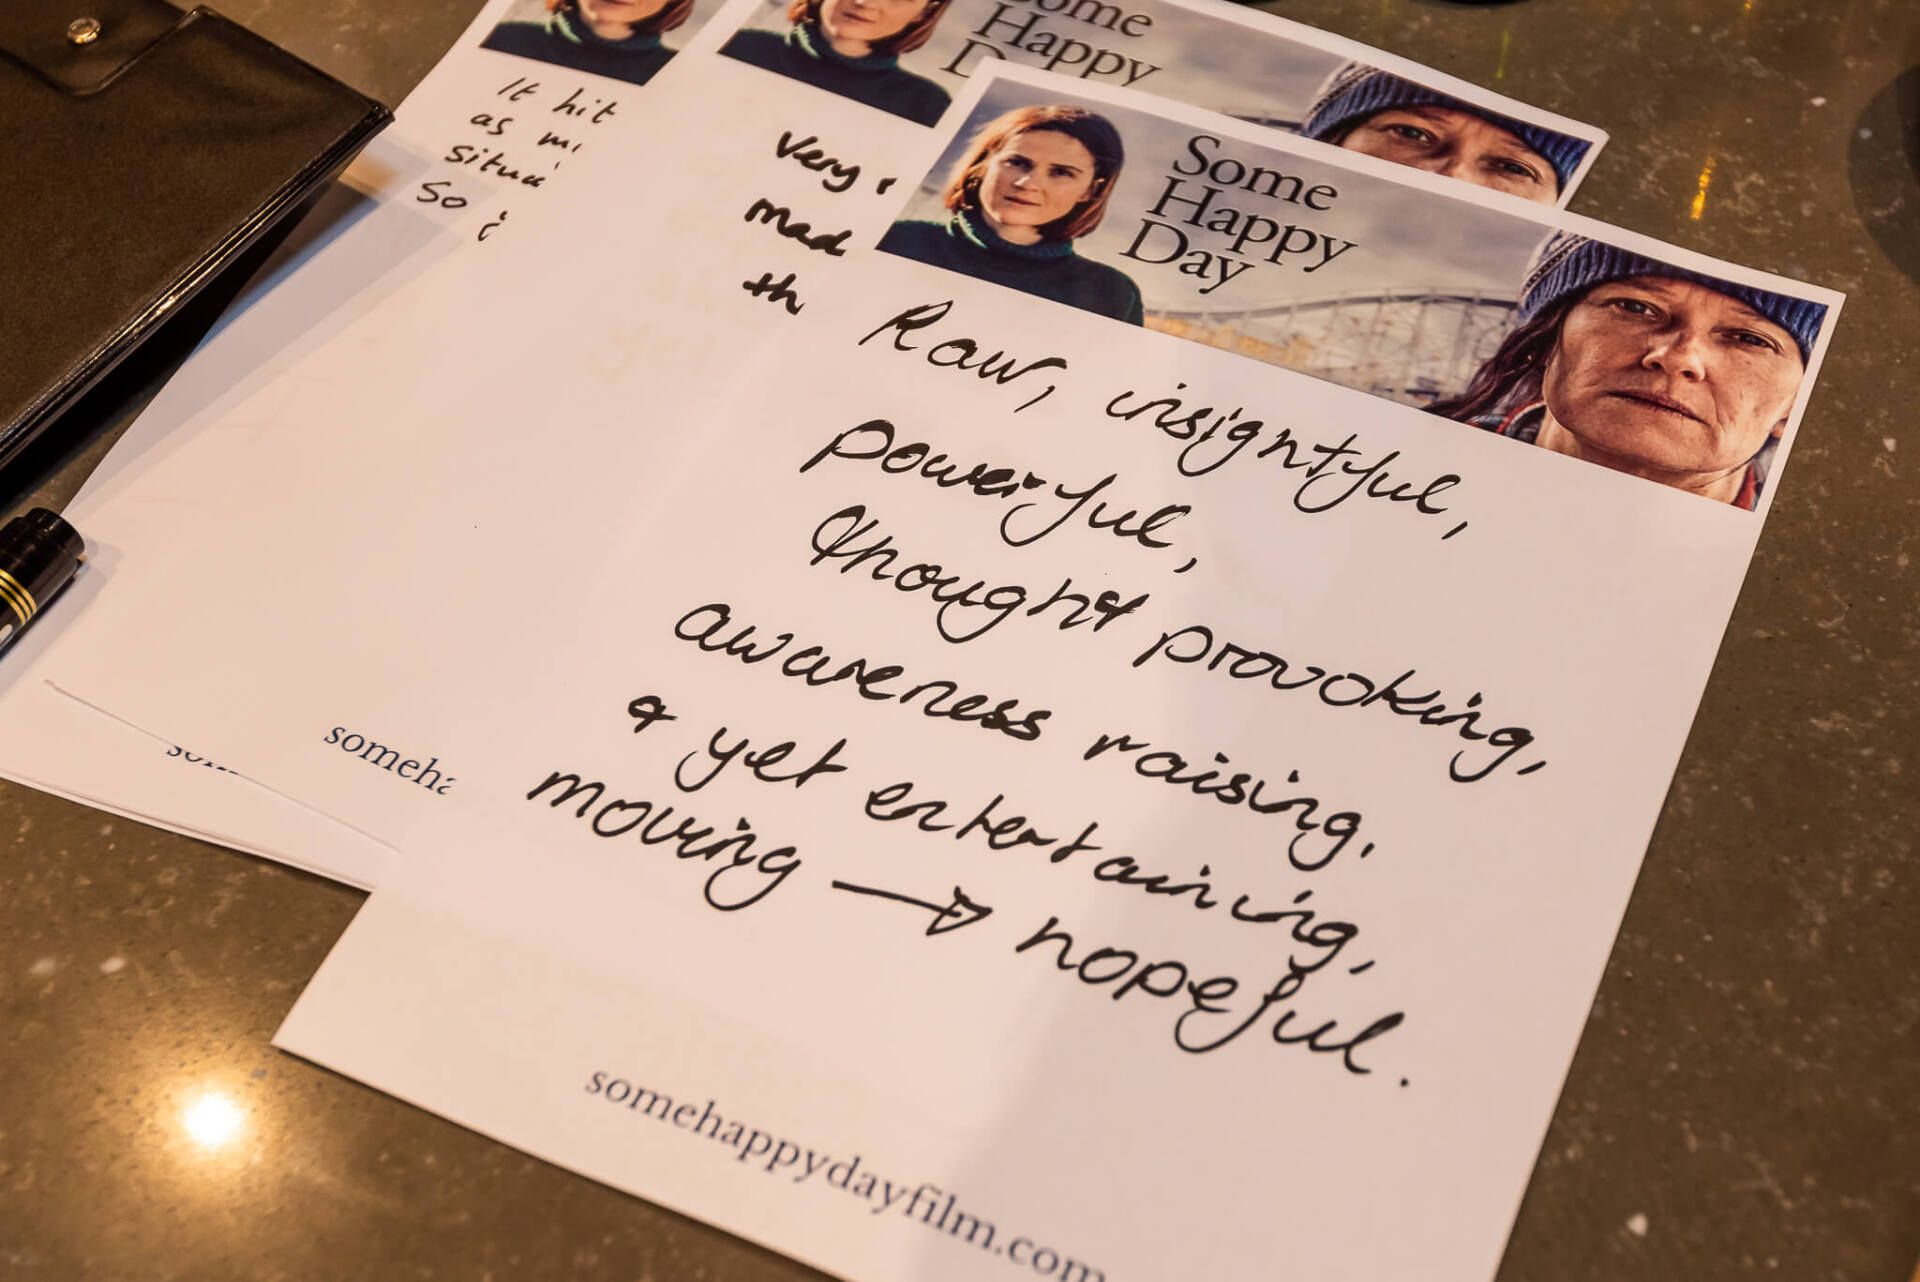 It hit
as
so
Some
Happy
Very
mad
th
someh
Some
Happy
Day
Raw, insightful,
powerful,
thought provoking,
awareness raising,
& yet entertaining,
moving → hopeful.
somehappydayfilm.com